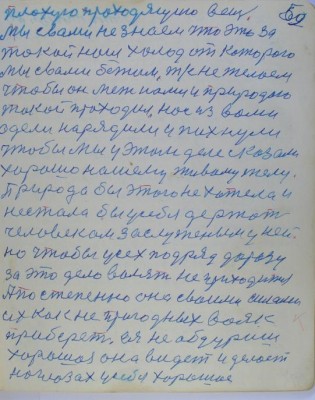 плохую проходящую вещ.
мы свами не знаем что это за
такой наш холод от которого
мы свами бежим, тк не желаем
чтобы он меж нами и природою
такой проходил, нас из вами
одели нарядили и пихнули
чтобы мы у этом деле сказали
хорошо нашему живому телу.
Природа бы этого не хотела и
нестала бы у себя держать
человеком заслуженым у ней.
но чтобы усех подряд дорогу
за это дело валят не приходится
А постепенно она своими силами
их как не пригодных вояк
приберет. ея не абдуриш
хорошая она видет и делает
на глазах у себя хорошое